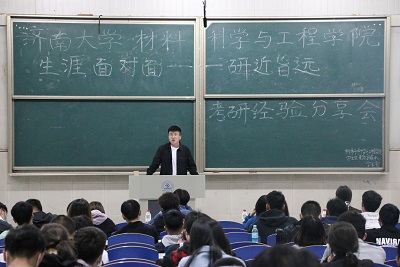 济南大学 材料科学与工程学院
生涯面对面——研近旨远
考研经验分享会
NAVARE